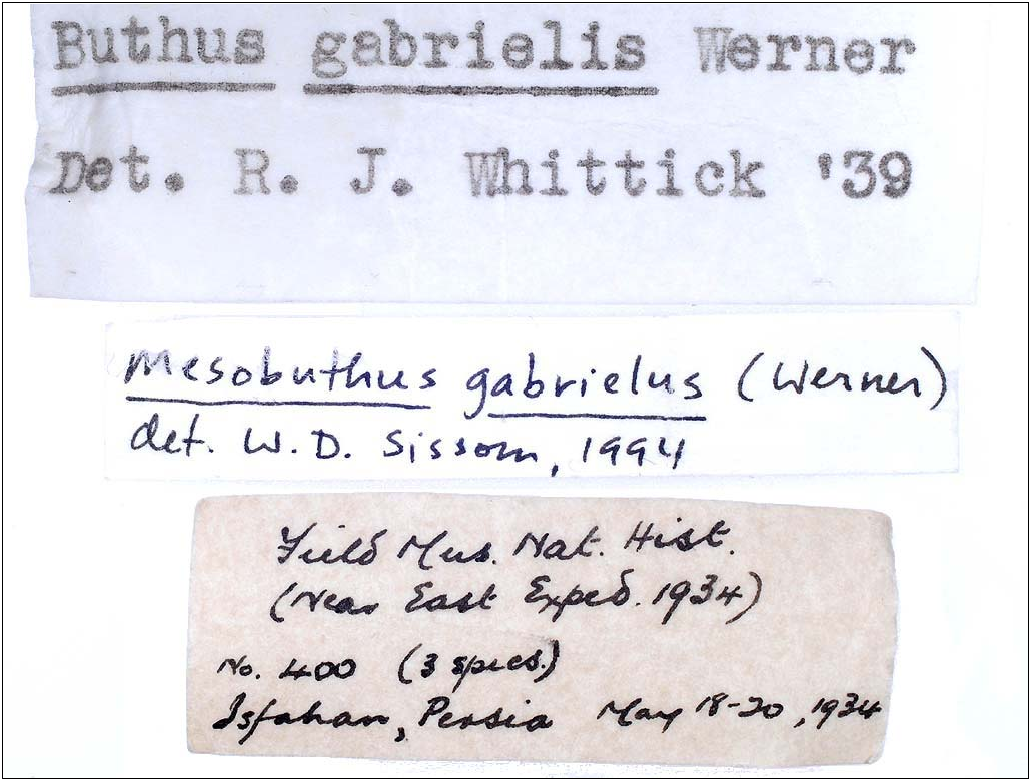 Buthus gabrielis Werner
Det. R. J. Whittick '39
Mesobuthus gabrielus (Werner)
det. W. D. Sissom, 1994
Field Mus. Nat. Hist.
(Near East Exped. 1934)
No. 400 (3 spies.)
Isfahan, Persia May 18-20, 1934